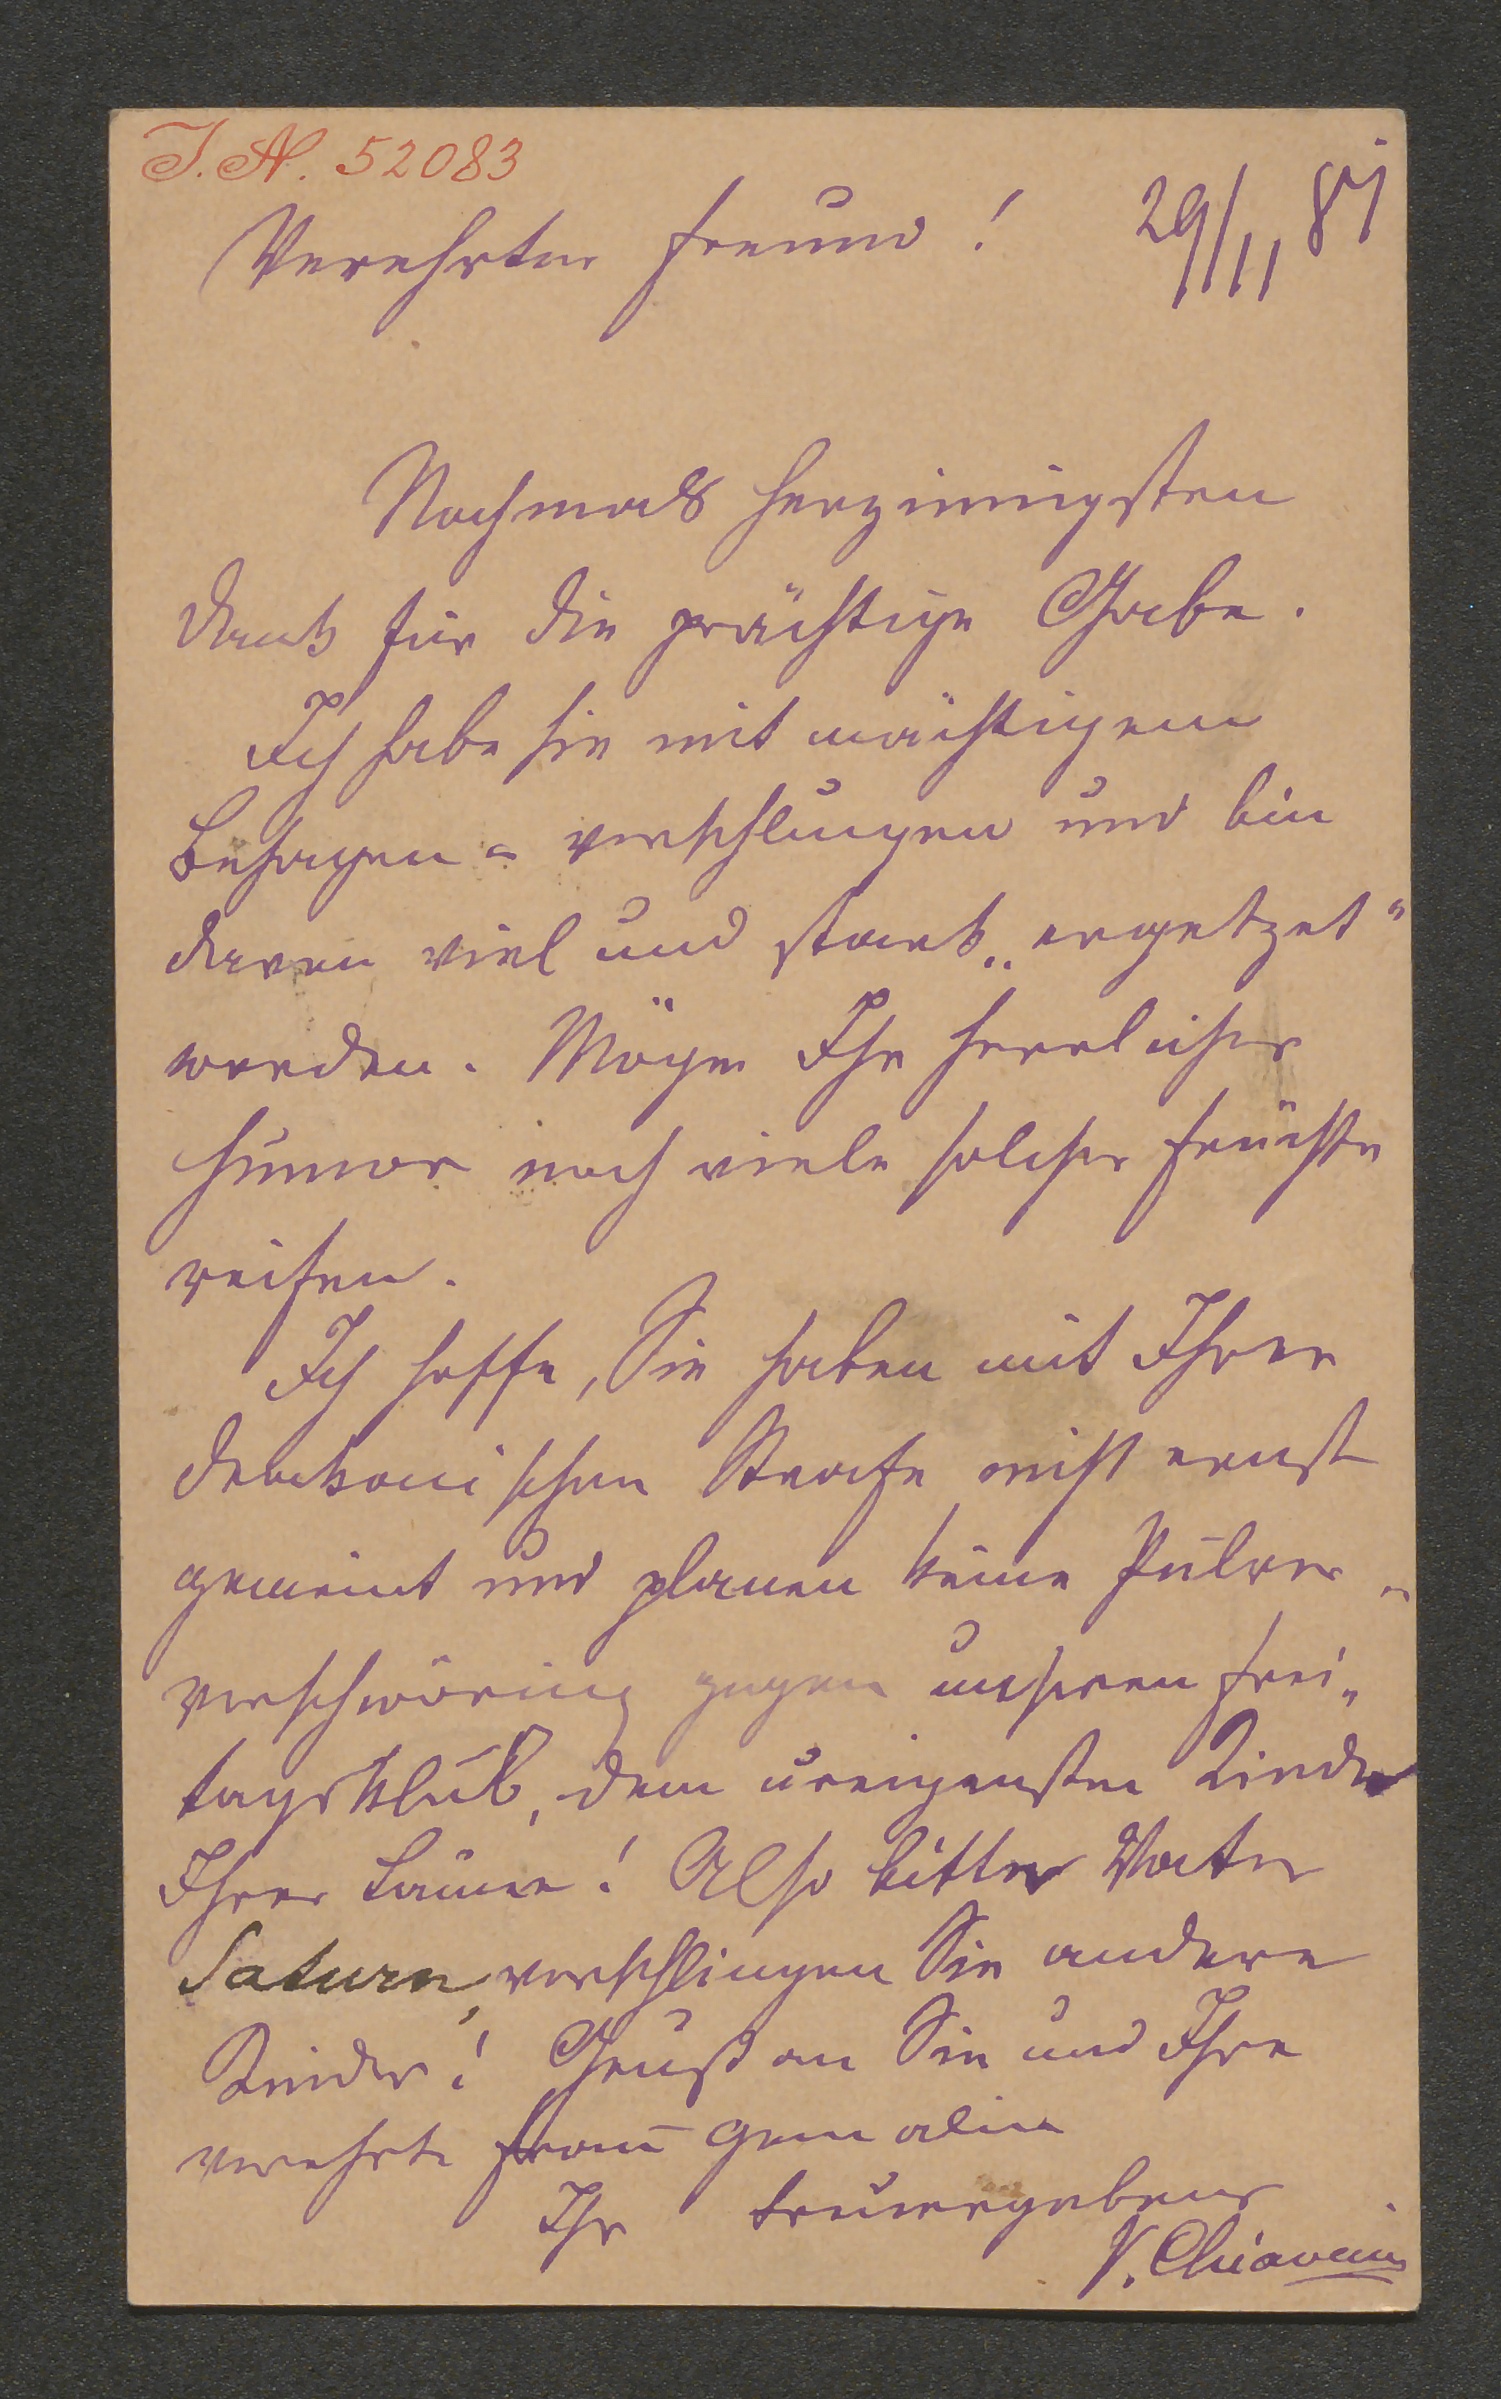 I. N. 52083
Verehrter Freund! 29/11 87
Nochmals herzinnigsten
Dank für die prächtige Gabe.
Ich habe sie mit mächtigem
Behagen = verschlungen und bin
davon viel und stark „ergetzet"
worden. Möge Ihr herrlicher
Humor noch viele solcher Früchte
reifen.
Ich hoffe, Sie haben mit Ihrer
drakonischen Strafe nicht ernst
gemeint und planen keine Pulver-
verschwörung gegen unseren Frei-
tagsklub, dem ureigensten Kinde
Ihrer Laune! Also bitte Vater
Saturn, verschlingen Sie andere
Kinder! Gruß an Sie und Ihre
verehrte Frau Gemalin
Ihr treuergebener
V. Chiavacci